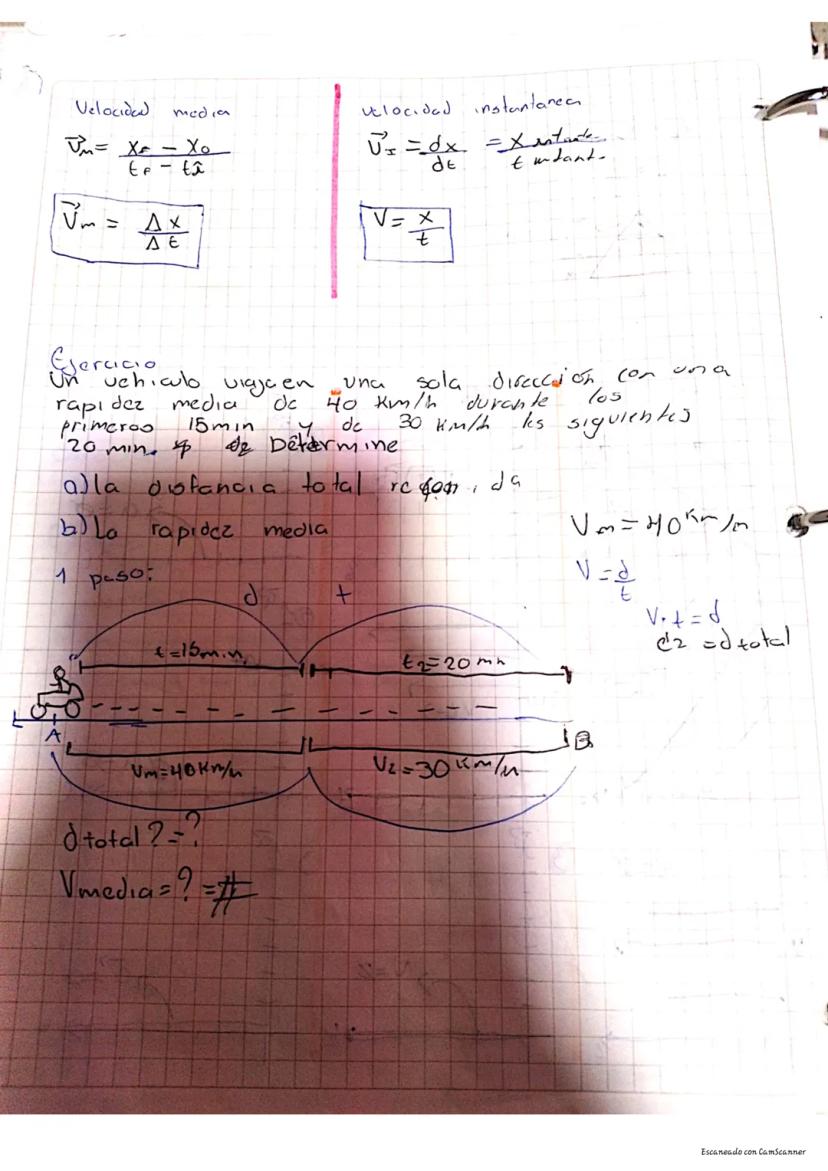 Velocidad media
V⃗m = xF - xo / tF - tî
V⃗m = Δx / Δt
velocidad instantanea
V⃗I = dx / dt = x instante / t instant.
V = x / t
Ejercicio
Un vehiculo viaja en una sola dirección con una
rapidez media de 40 Km/h durante los
primeros 15 min y de 30 Km/h los siguientes
20 min. de Determine
a) la distancia total da
b) La rapidez media
Vm = 40 Km/h
V = d / t
V.t = d
= d total
1 paso:
d +
t = 15 min. t2 = 20 mn
A B
Vm = 40 Km/h V2 = 30 Km/h
d total ? = ?
Vmedia = ? = #
Escaneado con CamScanner